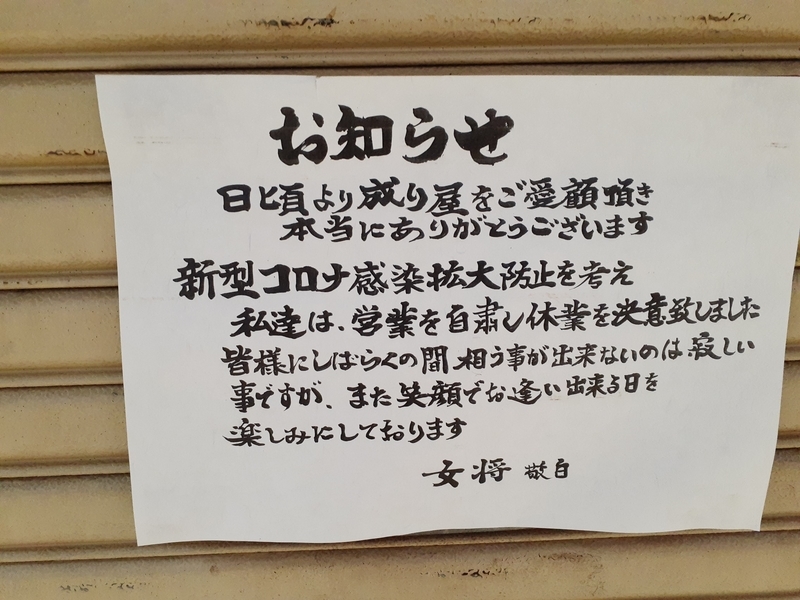 お知らせ
日比頃より成り屋をご愛顧頂き
本当にありがとうございます
新型コロナ感染拡大防止を考え
私達は、営業を自粛し休業を決意致しました
皆様にしばらくの間相う事が出来ないのは寂しい
事ですが、また笑顔でお逢い出来る日を
楽しみにしております
女将 敬白